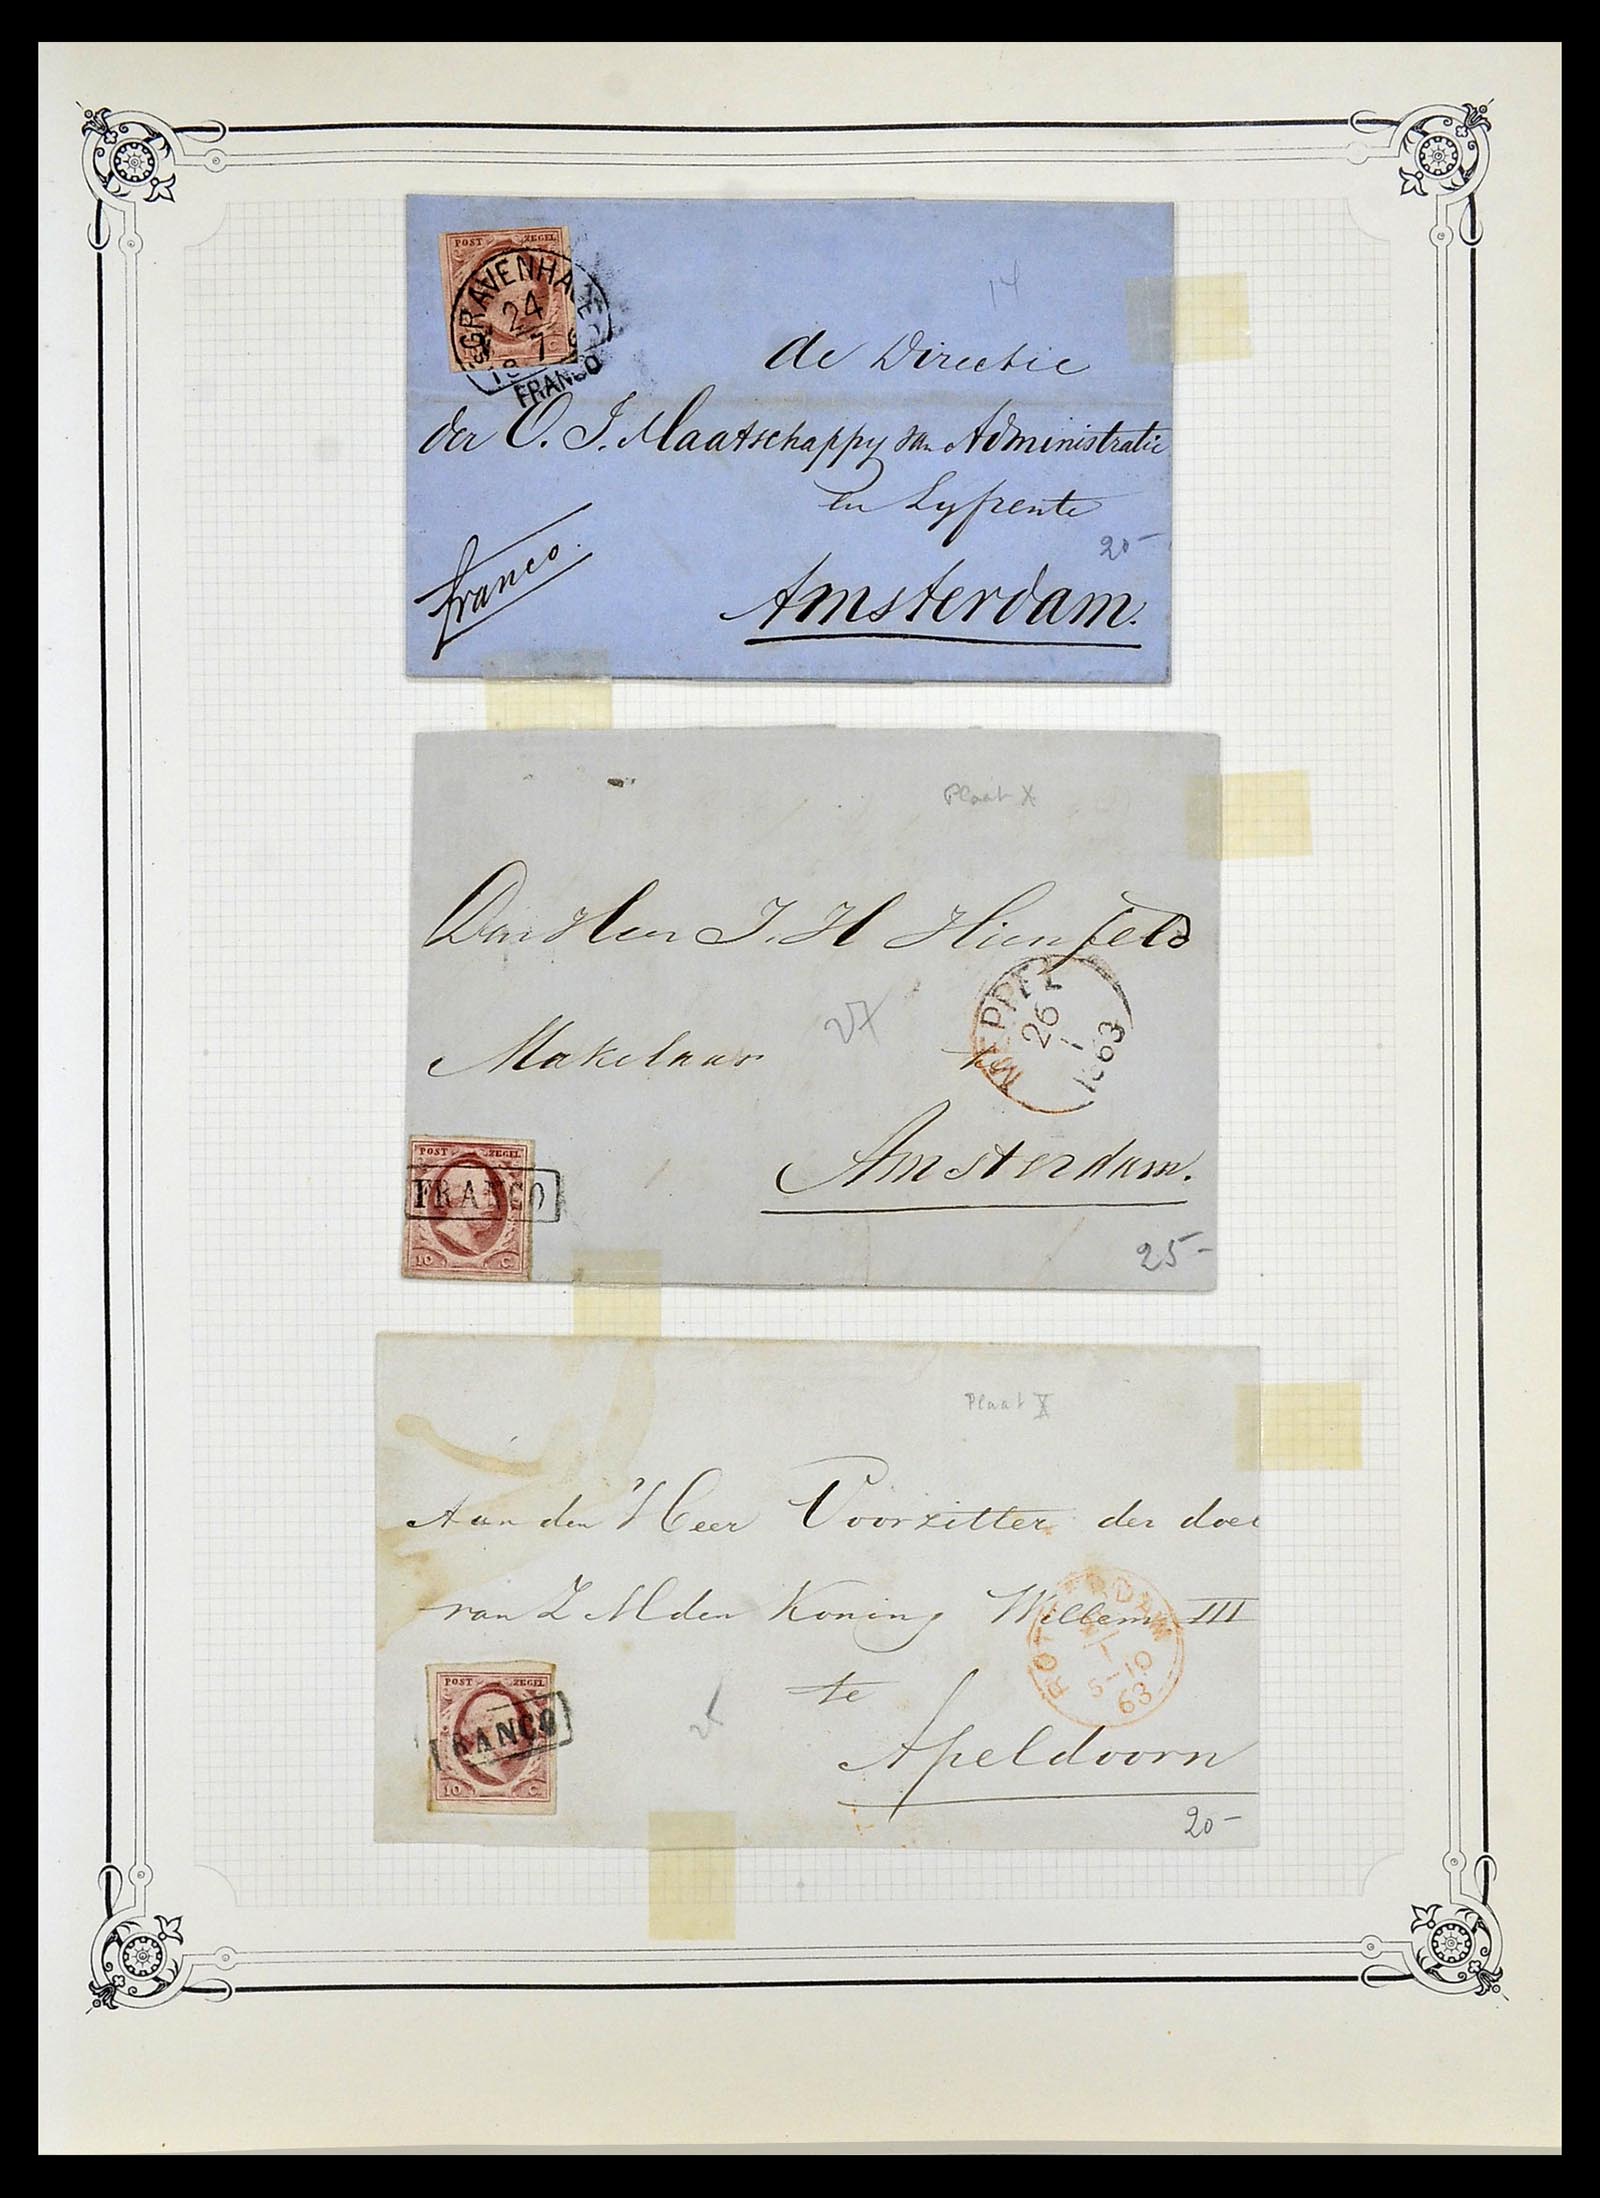 POST ZEGEL
GRAVENHAGE
24
7
FRANCO
14
de Directie
der O. I. Maatschappy van Administratie
en Lyfrente
20-
franco.
Amsterdam.
Plaat X
Den Heer J. H Hienfeld
MEPPEL
26
1
1863
Makelaar te
Amsterdam.
POST ZEGEL
FRANCO
10 C
25-
Plaat X
Aan den Heer Voorzitter der doel
van Z M den Koning Willem III
ROTTERDAM
1
5-10
63
te
POST ZEGEL
FRANCO
10 C.
Apeldoorn
20-